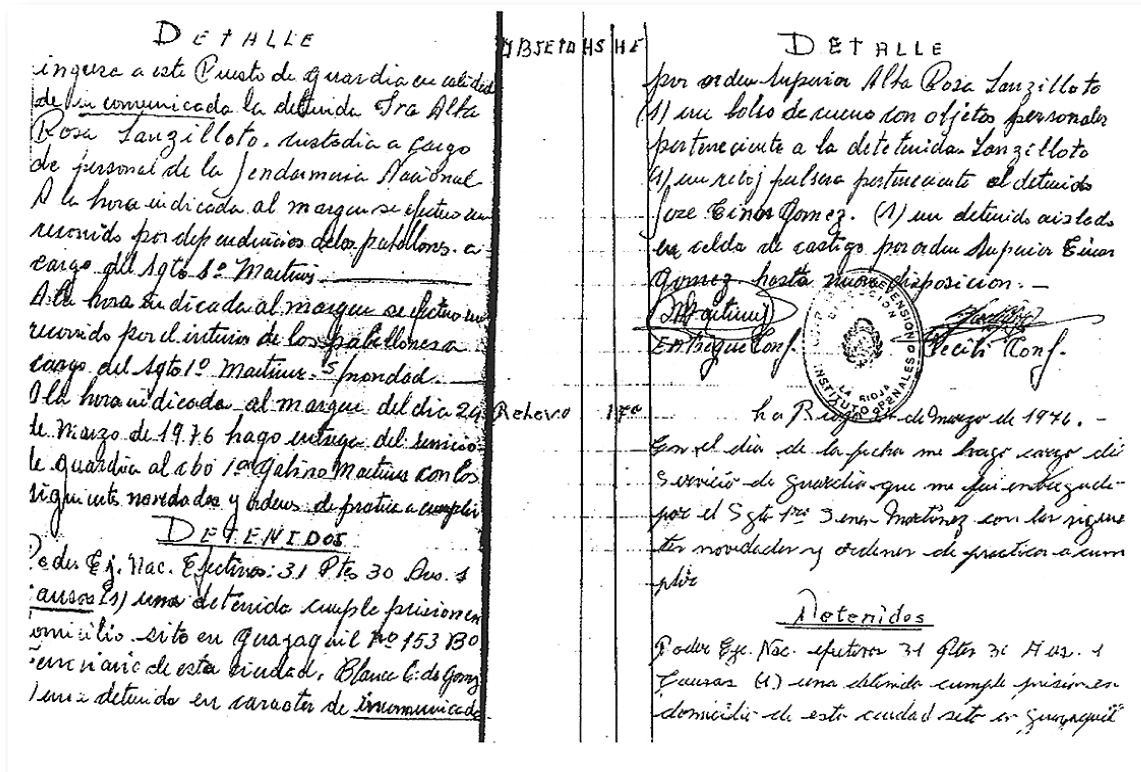 DETALLE
ingresa a este Puesto de guardia en calidad
de incomunicada la detenida Sra Alba
Rosa Lanzilloto, custodia a cargo
de personal de la Jendarmeria Nacional
A la hora indicada al margen se efectuo un
recorrido por dependencias de los pabellones a
cargo del Sgto 1º Martinez
A la hora indicada al margen se efectuo un
recorrido por el interior de los pabellones a
cargo del Sgto 1º Martinez S/novedad.
A la hora indicada al margen del dia 24
de Marzo de 1976 hago entrega del servicio
de guardia al cbo 1º Gabino Martinez con las
siguiente novedades y ordenes de practica a cumplir
DETENIDOS
Poder Ej. Nac. Efectivos: 31 Ptes 30 Aus. 1
Causas (1) una detenida cumple prision en
domicilio sito en Guayaquil Nº 153 Bº
de esta ciudad, Blanca C. de Gomez
1 una detenida en caracter de incomunicada
OBJETO HS HE
Relevo 17ª
DETALLE
por orden Superior Alba Rosa Lanzilloto
(1) un bolso de cuero con objetos personales
perteneciente a la detetenida Lanzilloto
(1) un reloj pulsera perteneciente al detenido
Jose Einar Gomez. (1) un detenido aislado
en celda de castigo por orden Superior Einar
Gomez hasta nueva disposicion. -
Entregue Conf. Recibi Conf.
INSTITUTO LA RIOJA
La Rioja de Marzo de 1976. -
En el dia de la fecha me hago cargo del
Servicio de guardia que me fui entregado
por el Sgto 1ro Martinez con las siguien
tes novedades y ordenes de practica a cum
plir
Detenidos
Poder Eje. Nac. efectivos 31 Ptes 30 Aus. 1
Causas (1) una detenida cumple prision en
domicilio de esta ciudad sito en Guayaquil